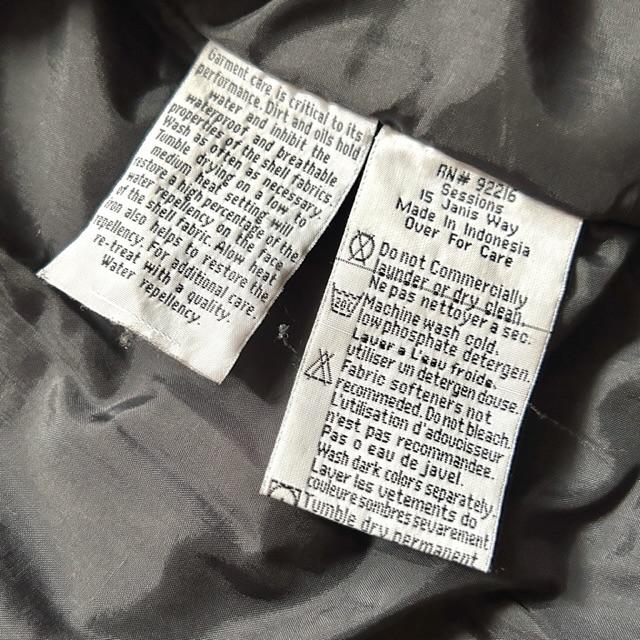 Garment care is critical to its
performance. Dirt and oils hold
water and inhibit the
waterproof and breathable
properties of the shell fabrics.
Wash as often as necessary.
Tumble drying on a low to
medium heat setting will
restore a high percentage of the
water repellency on the face
of the shell fabric. Alow heat
iron also helps to restore the
repellency. For additional care.
re-treat with a quality.
Water repellency.
RN# 92216
Sessions
15 Janis Way
Made In Indonesia
Over For Care
Do not Commercially
launder or dry clean.
Ne pas nettoyer a sec.
Machine wash cold.
low phosphate detergen.
Laver a L'eau froide.
utiliser un detergen douse.
Fabric softeners not
recommeded. Do not bleach.
L'utilisation d'adoucisseur
n'est pas recommandee.
Pas o eau de javel.
Wash dark colors separately
Laver les vetements do
couleure sombres sevarement
Tumble dry permanent